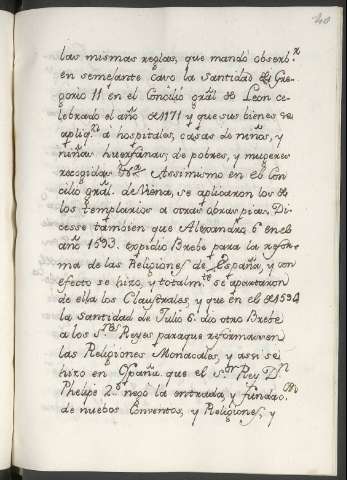 40
las mismas reglas, que mandó observr
en semejante caso la Santidad de Gre-
gorio 11 en el Concilio grãl de Leon ce-
lebrado el año de 1171 y que sus bienes se
apliqn á hospitales, casas de niños, y
niñas huerfanas, de pobres, y mugeres
recogidas Assimismo en el Con
cilio grãl. de Viena, se aplicaron los de
los templarios a otras obras pias. Di-
cesse tambien que Alexandro 6º en el
año 1693. expidio Brebe para la refor-
ma de las Religiones de España, y con
efecto se hizo, y totalmte se apartaron
de ella los Claustrales, y que en el de 1534
la Santidad de Julio 6. dio otro Brebe
a los Sres Reyes paraque reformassen
las Religiones Monacales, y assi se
hizo en España. que el Sor Rey Dn
Phelipe 2º negó la entrada, y fundaon
de nuebos Conventos, y Religiones, y